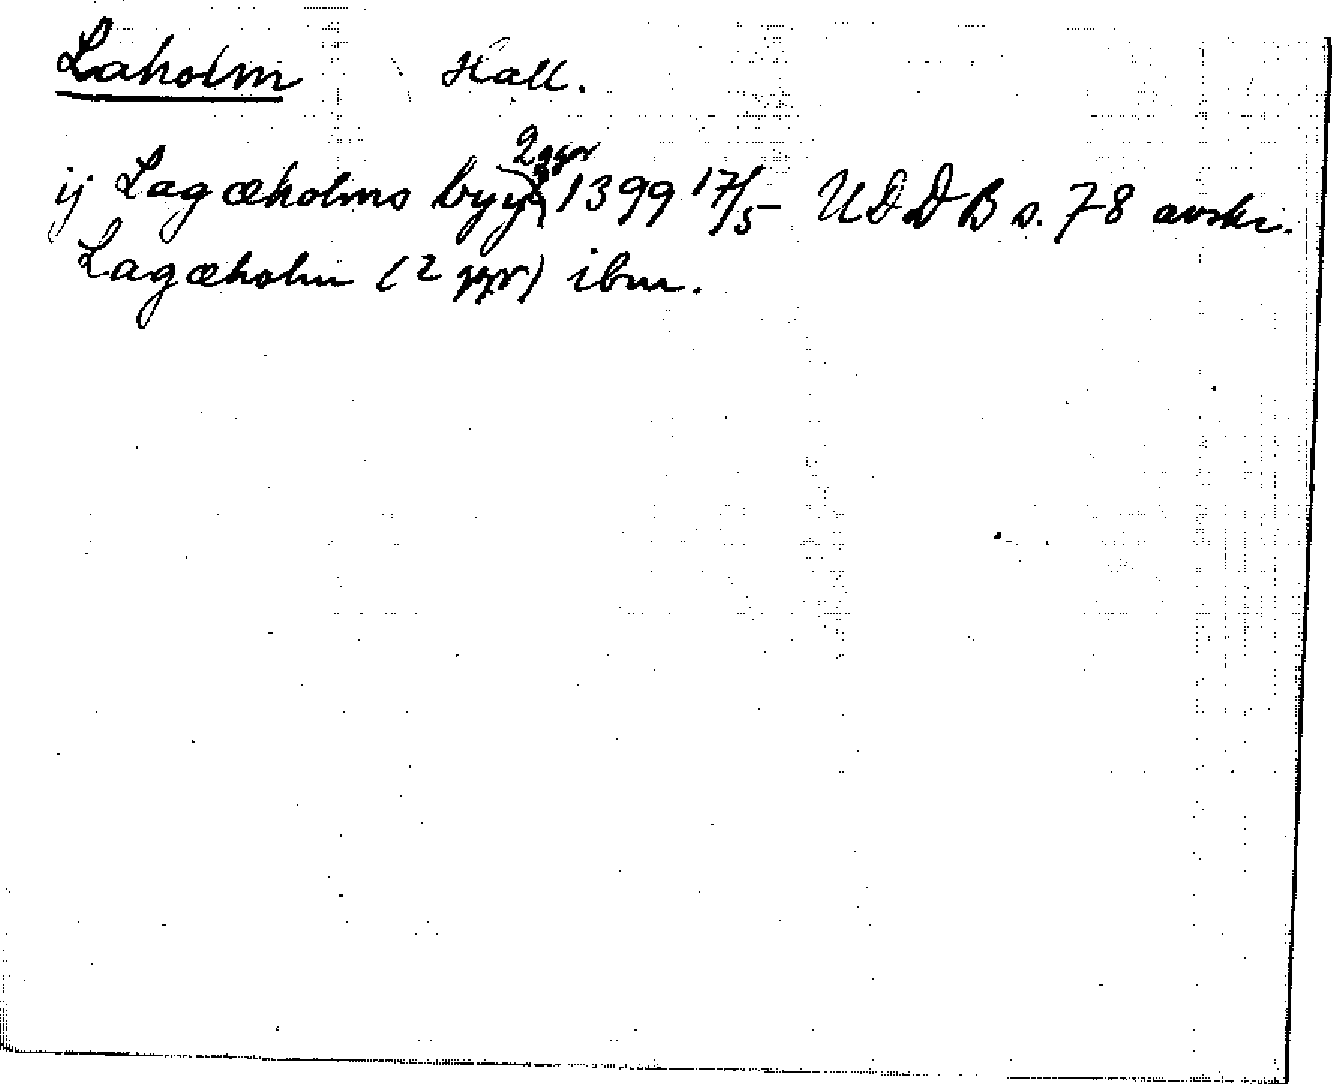 Laholm Hall.
ij Lagæholms byy 2 ggr 1399 17/5 UDDB s. 78 avskr.
Lagæholm (2 ggr) ibm.